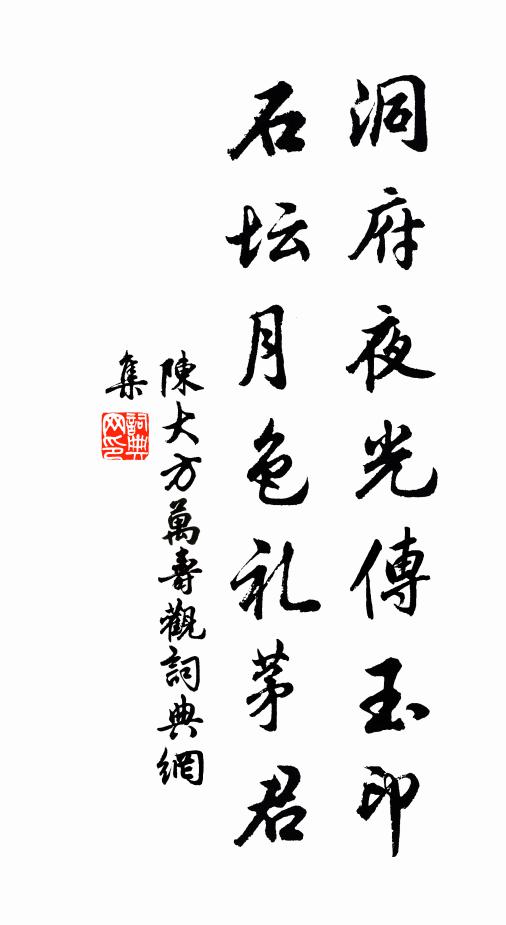 洞府夜光傳玉印
石坛月色礼茅君
陳大方萬壽觀詞典網
集
詞典网印